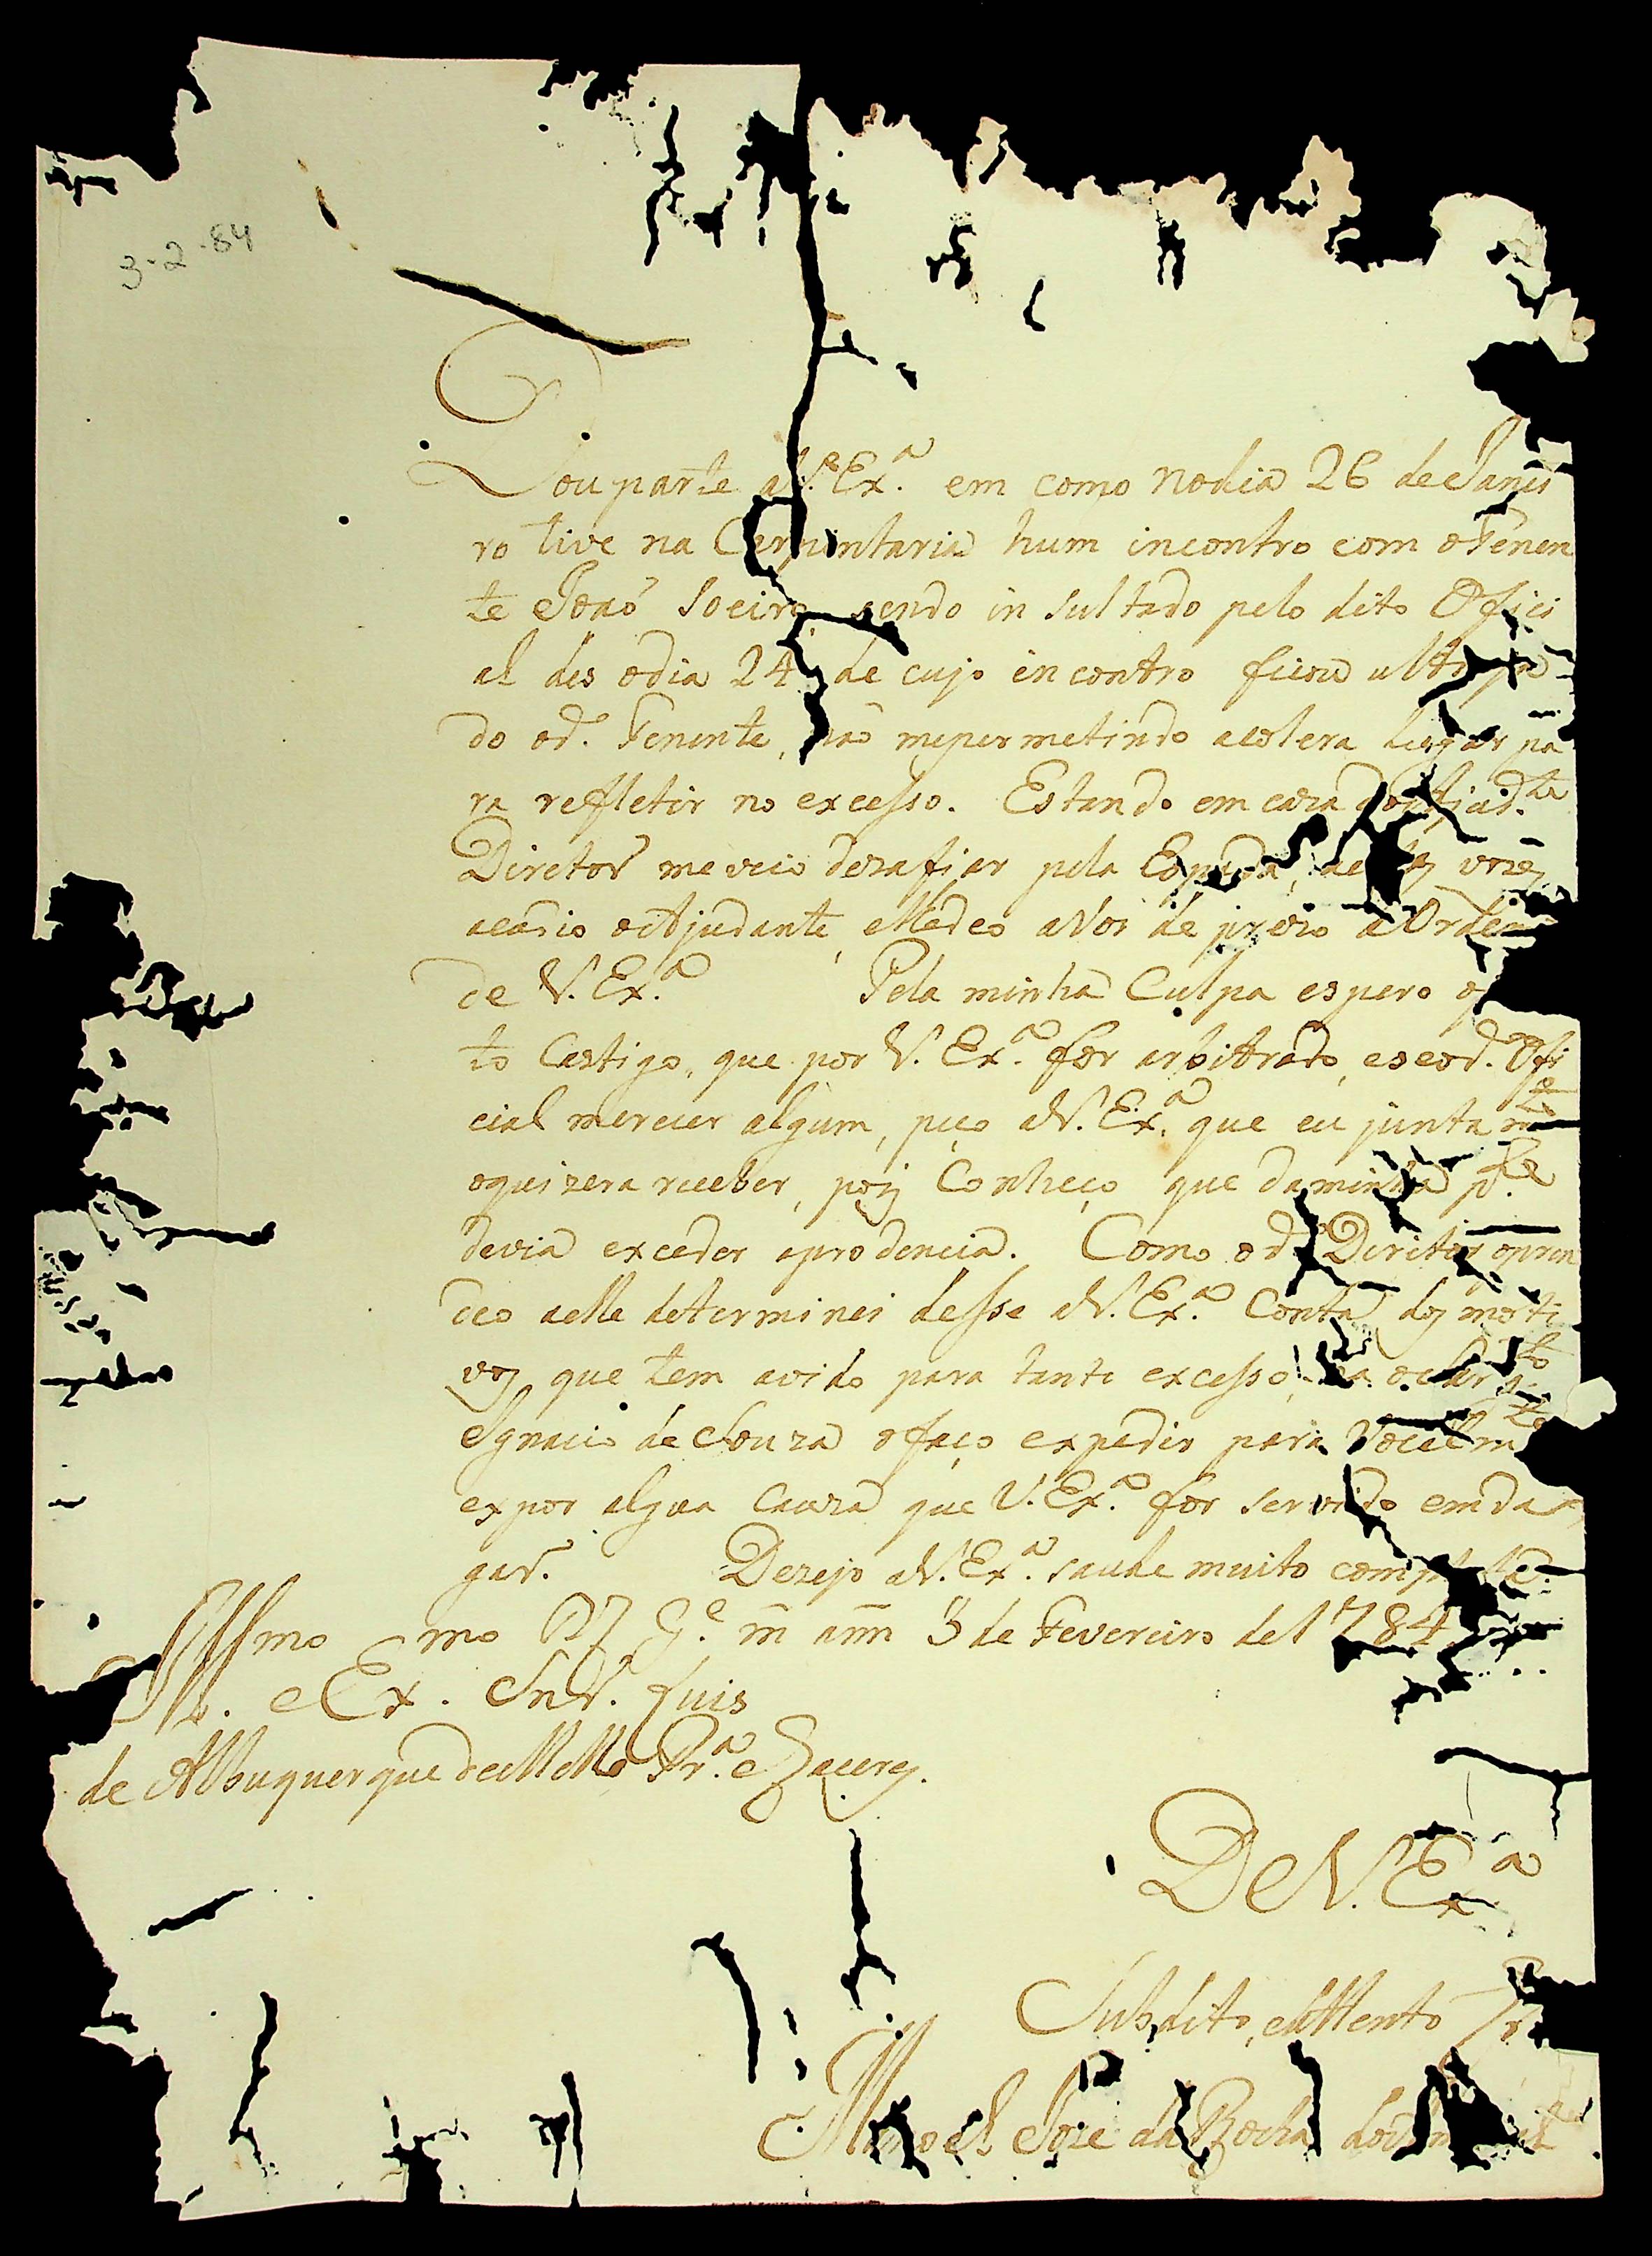 3-2-84
Dou parte a V. Ex.ª em como no dia 26 de Janei
ro tive na hum incontro com o Tenen
te Joaó Soeiro, sendo in sultado pelo dito Ofici
al des o dia 24, de cujo in contro ficou
do o d. Tenente, naó me permetindo a colera lugar pa
ra refletir no excesso. Estando em caza
Diretor me veio dezafiar pela Espada, vozes
acodio o Ajudante, e Me deo a Vos de prezo a Ordem
de V. Ex.ª Pela minha Culpa espero o
to Castigo, que por V. Ex.ª for arbitrado, e se o d. Ofi
cial merecer algum, peço a V. Ex.ª que eu junta m.te
o quizera receber, pois Conheço que da minha p.te
devia exceder a prodencia. Como o d. Diretor o pren
deo a elle determinei desse a V. Ex.ª Conta dos moti
vos que tem avido para tanto excesso,
Ignacio de Souza o faço expedir para
expor algua Cauza que V. Ex.ª for servido emda
gar. Dezejo a V. Ex.ª saude muito
D.s G.e m ann 3 de Fevereiro de 1784
Ill.mo e Ex.mo Snr. Luis
de Albuquerque de Mello Pr.ª e Caceres.
De V. Ex.ª
Subdito, e Attento
Manoel Joze da Rocha